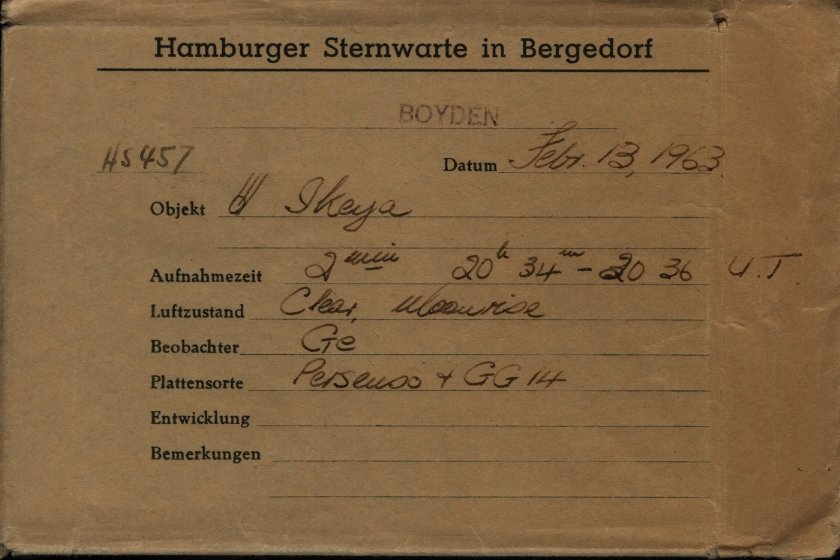 Hamburger Sternwarte in Bergedorf
BOYDEN
HS457
Datum Febr. 13, 1963
Objekt Ikeya
Aufnahmezeit 2 min 20h 34m - 20 36 U.T.
Luftzustand Clear, Moonrise
Beobachter Ge
Plattensorte + GG 14
Entwicklung
Bemerkungen